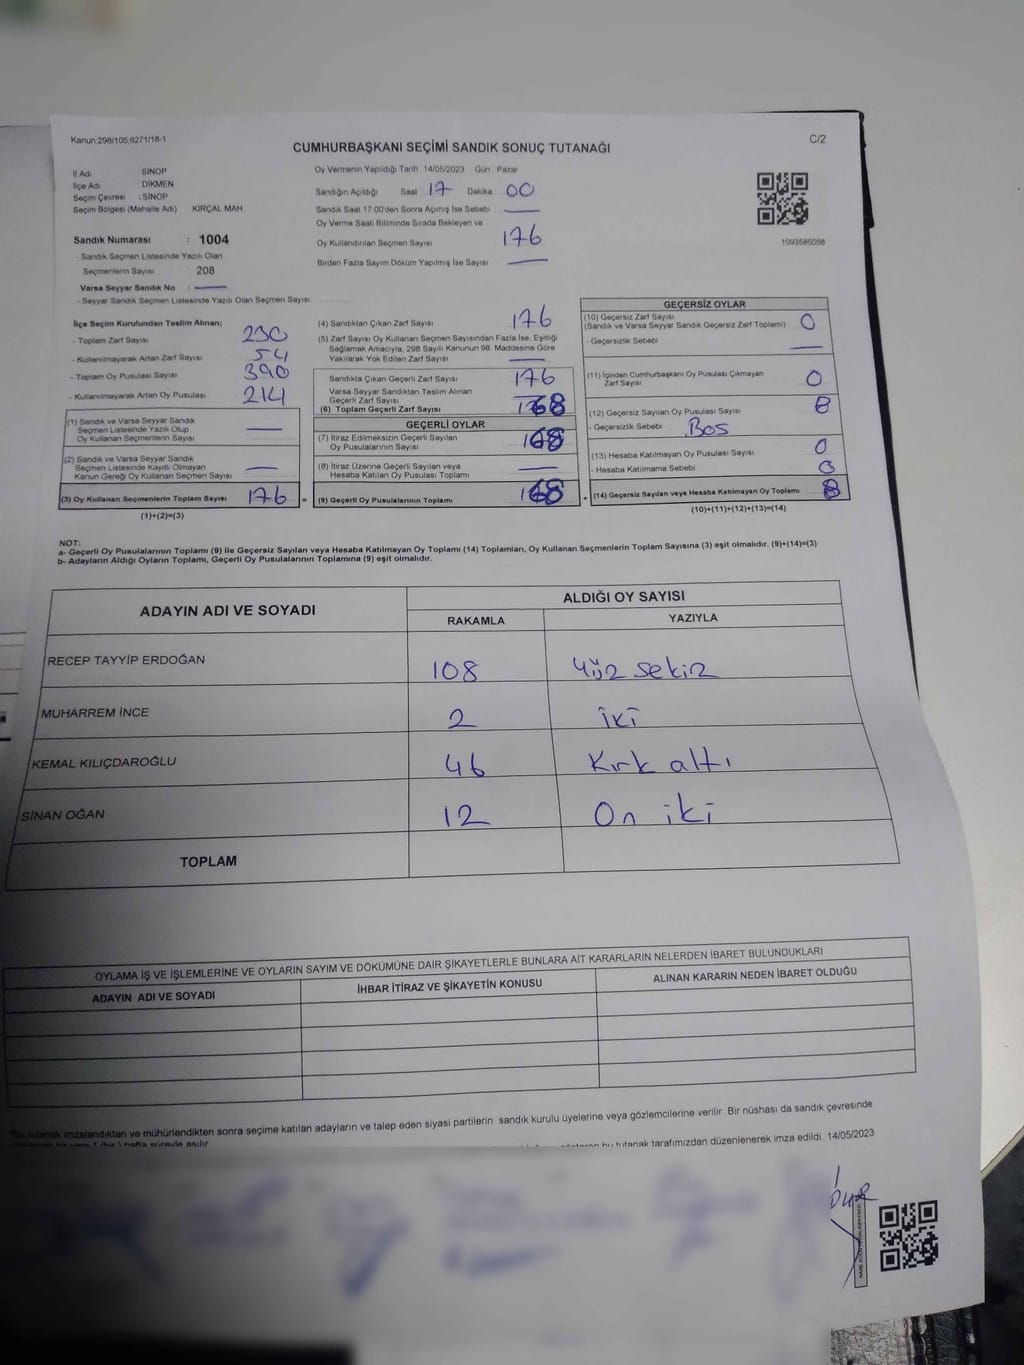 Kanun:298/105,6271/18-1
C/2
CUMHURBAŞKANI SEÇİMİ SANDIK SONUÇ TUTANAĞI
İl Adı SİNOP
İlçe Adı DİKMEN
Seçim Çevresi : SİNOP
Seçim Bölgesi (Mahalle Adı) KIRÇAL MAH.
Sandık Numarası : 1004
- Sandık Seçmen Listesinde Yazılı Olan
Seçmenlerin Sayısı : 208
Varsa Seyyar Sandık No :
- Seyyar Sandık Seçmen Listesinde Yazılı Olan Seçmen Sayısı:
Oy Vermenin Yapıldığı Tarih 14/05/2023 Gün : Pazar
Sandığın Açıldığı Saat 17 Dakika 00
Sandık Saat 17:00'den Sonra Açılmış İse Sebebi
Oy Verme Saati Bitiminde Sırada Bekleyen ve
Oy Kullandırılan Seçmen Sayısı 176
Birden Fazla Sayım Döküm Yapılmış İse Sayısı
1093585058
İlçe Seçim Kurulundan Teslim Alınan;
- Toplam Zarf Sayısı 230
- Kullanılmayarak Artan Zarf Sayısı 54
- Toplam Oy Pusulası Sayısı 390
- Kullanılmayarak Artan Oy Pusulası 214
(1) Sandık ve Varsa Seyyar Sandık
Seçmen Listesinde Yazılı Olup
Oy Kullanan Seçmenlerin Sayısı
(2) Sandık ve Varsa Seyyar Sandık
Seçmen Listesinde Kayıtlı Olmayan
Kanun Gereği Oy Kullanan Seçmen Sayısı
(3) Oy Kullanan Seçmenlerin Toplam Sayısı 176
(1)+(2)=(3)
(4) Sandıktan Çıkan Zarf Sayısı 176
(5) Zarf Sayısı Oy Kullanan Seçmen Sayısından Fazla İse, Eşitliği
Sağlamak Amacıyla, 298 Sayılı Kanunun 98. Maddesine Göre
Yakılarak Yok Edilen Zarf Sayısı
Sandıkta Çıkan Geçerli Zarf Sayısı 176
Varsa Seyyar Sandıktan Teslim Alınan
Geçerli Zarf Sayısı
(6) Toplam Geçerli Zarf Sayısı 168
GEÇERLİ OYLAR
(7) İtiraz Edilmeksizin Geçerli Sayılan
Oy Pusulalarının Sayısı 168
(8) İtiraz Üzerine Geçerli Sayılan veya
Hesaba Katılan Oy Pusulalarının Toplamı
(9) Geçerli Oy Pusulalarının Toplamı 168
GEÇERSİZ OYLAR
(10) Geçersiz Zarf Sayısı
(Sandık ve Varsa Seyyar Sandık Geçersiz Zarf Toplamı) 0
- Geçersizlik Sebebi
(11) İçinden Cumhurbaşkanı Oy Pusulası Çıkmayan
Zarf Sayısı 0
(12) Geçersiz Sayılan Oy Pusulası Sayısı 8
- Geçersizlik Sebebi Bos
(13) Hesaba Katılmayan Oy Pusulası Sayısı 0
- Hesaba Katılmama Sebebi 0
(14) Geçersiz Sayılan veya Hesaba Katılmayan Oy Toplamı 8
(10)+(11)+(12)+(13)=(14)
NOT:
a- Geçerli Oy Pusulalarının Toplamı (9) ile Geçersiz Sayılan veya Hesaba Katılmayan Oy Toplamı (14) Toplamları, Oy Kullanan Seçmenlerin Toplam Sayısına (3) eşit olmalıdır. (9)+(14)=(3)
b- Adayların Aldığı Oyların Toplamı, Geçerli Oy Pusulalarının Toplamına (9) eşit olmalıdır.
ADAYIN ADI VE SOYADI ALDIĞI OY SAYISI
RAKAMLA YAZIYLA
RECEP TAYYİP ERDOĞAN 108 yüz sekiz
MUHARREM İNCE 2 iki
KEMAL KILIÇDAROĞLU 46 Kırk altı
SİNAN OĞAN 12 On iki
TOPLAM
OYLAMA İŞ VE İŞLEMLERİNE VE OYLARIN SAYIM VE DÖKÜMÜNE DAİR ŞİKAYETLERLE BUNLARA AİT KARARLARIN NELERDEN İBARET BULUNDUKLARI
ADAYIN ADI VE SOYADI İHBAR İTİRAZ VE ŞİKAYETİN KONUSU ALINAN KARARIN NEDEN İBARET OLDUĞU
tutanak imzalandıktan ve mühürlendikten sonra seçime katılan adayların ve talep eden siyasi partilerin sandık kurulu üyelerine veya gözlemcilerine verilir. Bir nüshası da sandık çevresinde
bu tutanak tarafımızdan düzenlenerek imza edildi. 14/05/2023